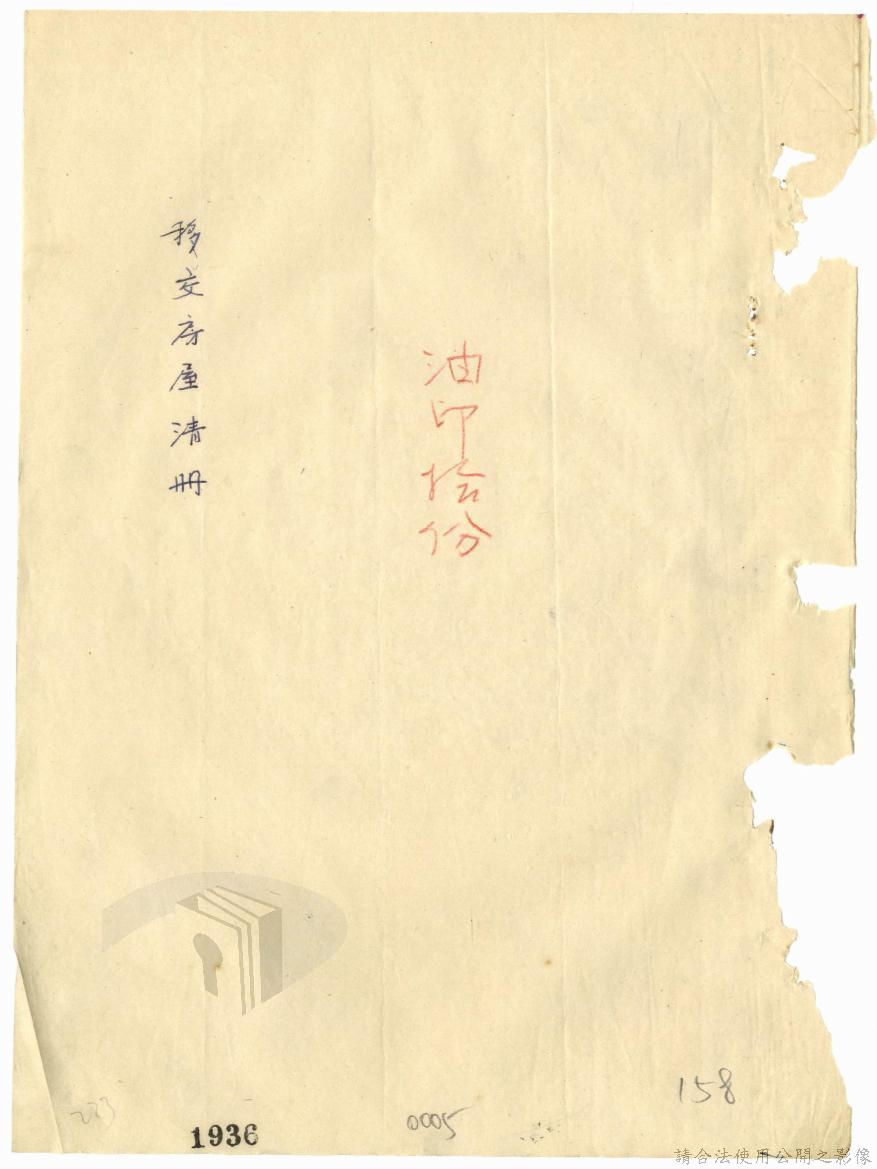 油印拾份
移交房屋清冊
158
0005
1936
223
請合法使用公開之影像